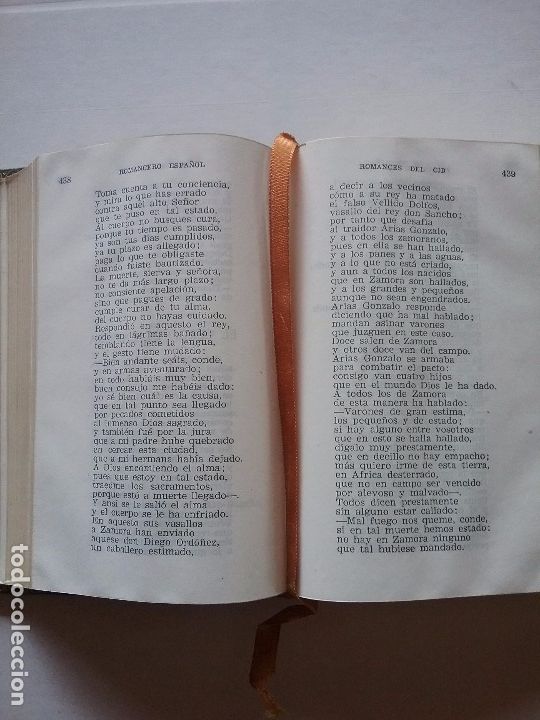 438
ROMANCERO ESPAÑOL
Toma cuenta a tu conciencia,
y mira lo que has errado
contra aquel alto Señor
que te puso en tal estado.
Al cuerpo no busques cura,
porque tu tiempo es pasado,
ya son tus días cumplidos,
ya tu plazo es allegado;
paga lo que te obligaste
cuando fuiste bautizado.
La muerte, sierva y señora,
no te da más largo plazo;
no consiente apelación,
sino que pagues de grado:
cumple curar de tu alma,
del cuerpo no hayas cuidado.
Respondió en aquesto el rey,
todo en lágrimas bañado;
temblando tiene la lengua,
y el gesto tiene mudado:
—Bien andante seáis, conde,
y en armas aventurado;
en todo habéis muy bien,
buen consejo me habéis dado;
yo sé bien cuál es la causa,
que en tal punto sea llegado
por pecados cometidos
al inmenso Dios sagrado,
y también fué por la jura
que a mi padre hube quebrado
en cercar esta ciudad,
que a mi hermana había dejado.
A Dios encomiendo el alma;
pues que estoy en tal estado,
traedme los sacramentos,
porque está a muerte llegado—.
Y ansí se le salió el alma
y el cuerpo se le ha enfriado.
En aquesto sus vasallos
a Zamora han enviado
aquese don Diego Ordóñez,
un caballero estimado,
ROMANCES DEL CID
439
a decir a los vecinos
cómo a su rey ha matado
el falso Vellido Dolfos,
vasallo del rey don Sancho;
por tanto que desafía
al traidor Arias Gonzalo,
y a todos los zamoranos,
pues en ella se han hallado,
y a los panes y a las aguas,
y a lo que no está criado,
y aun a todos los nacidos
que en Zamora son hallados,
y a los grandes y pequeños
aunque no sean engendrados.
Arias Gonzalo responde
diciendo que ha mal hablado;
mandan asinar varones
que juzguen en este caso.
Doce salen de Zamora
y otros doce van del campo.
Arias Gonzalo se armaba
para combatir el pacto:
consigo van cuatro hijos
que en el mundo Dios le ha dado.
A todos los de Zamora
de esta manera ha hablado:
—Varones de gran estima,
los pequeños y de estado;
si hay alguno entre vosotros
que en esto se halla hallado,
dígalo muy prestamente,
que en decillo no hay empacho;
más quiero irme de esta tierra,
en Africa desterrado,
que no en campo ser vencido
por alevoso y malvado—.
Todos dicen prestamente
sin alguno estar callado:
—Mal fuego nos queme, conde,
si en tal muerte hemos estado:
no hay en Zamora ninguno
que tal hubiese mandado.
todocoleccion